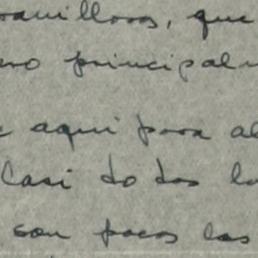 ravillosos, que
ero principalm
e aqui para al
Casi todos lo
son pocos las